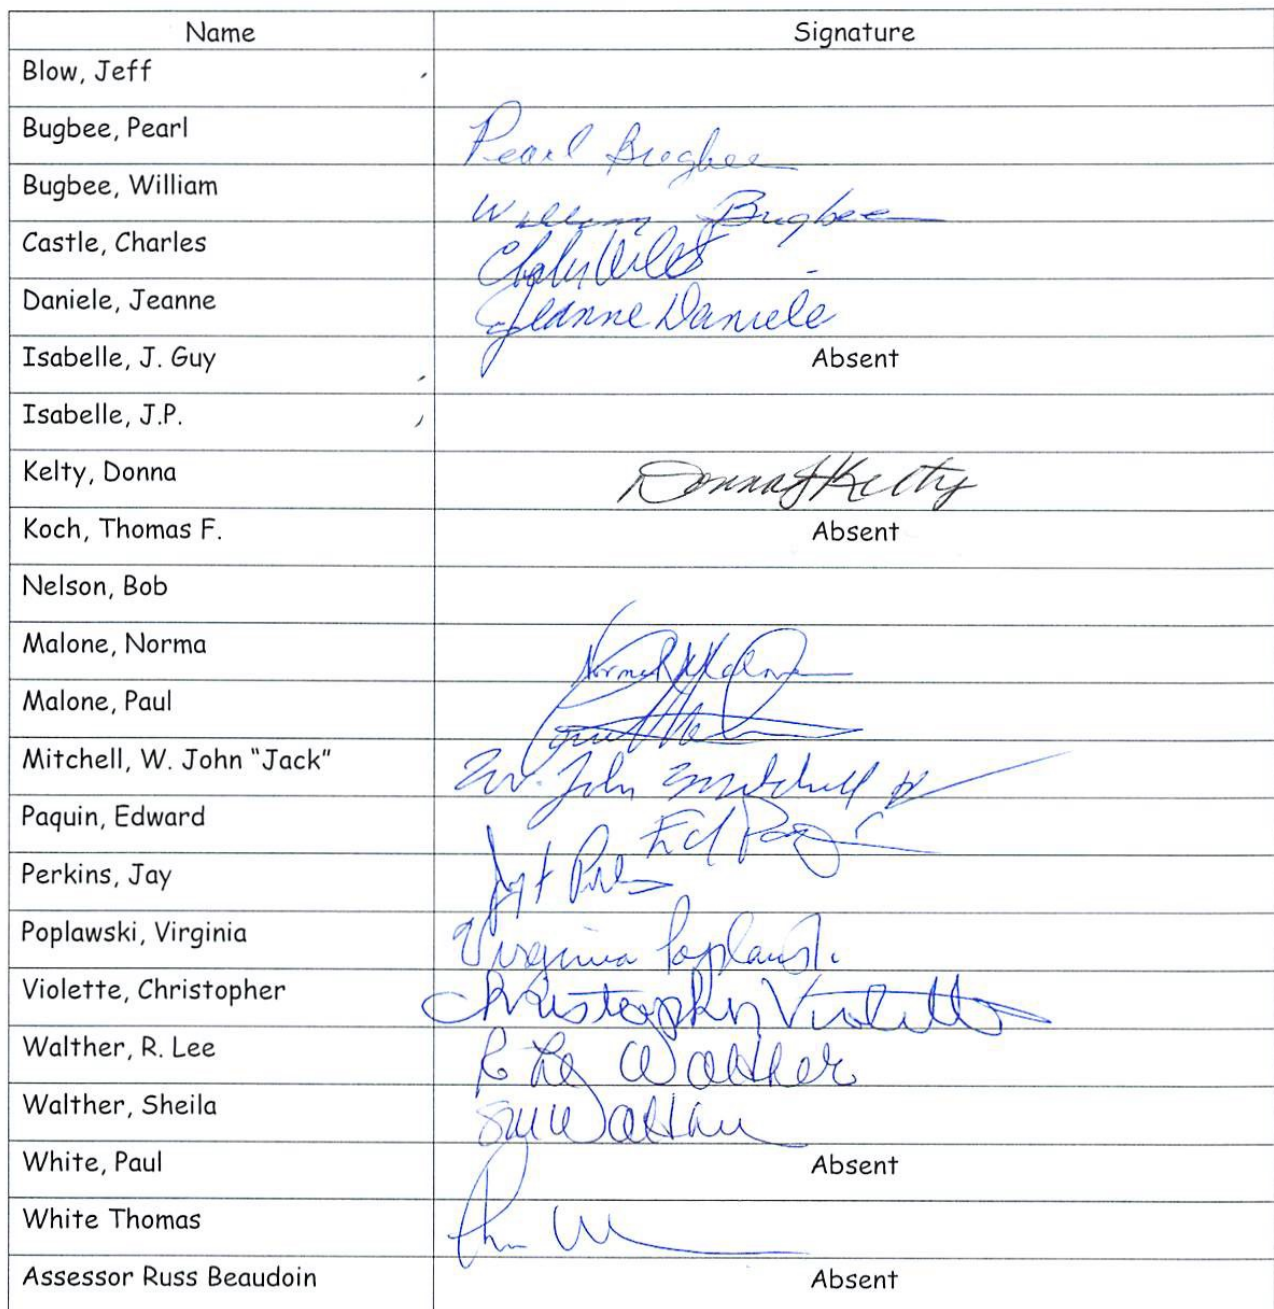 Name Signature
Blow, Jeff
Bugbee, Pearl Pearl Bugbee
Bugbee, William William Bugbee
Castle, Charles
Daniele, Jeanne Jeanne Daniele
Isabelle, J. Guy Absent
Isabelle, J.P.
Kelty, Donna Donna J Kelty
Koch, Thomas F. Absent
Nelson, Bob
Malone, Norma Norma Malone
Malone, Paul
Mitchell, W. John "Jack" W. John Mitchell
Paquin, Edward Ed
Perkins, Jay
Poplawski, Virginia Virginia Poplawski
Violette, Christopher Christopher Violette
Walther, R. Lee R Lee Walther
Walther, Sheila Walther
White, Paul Absent
White Thomas
Assessor Russ Beaudoin Absent